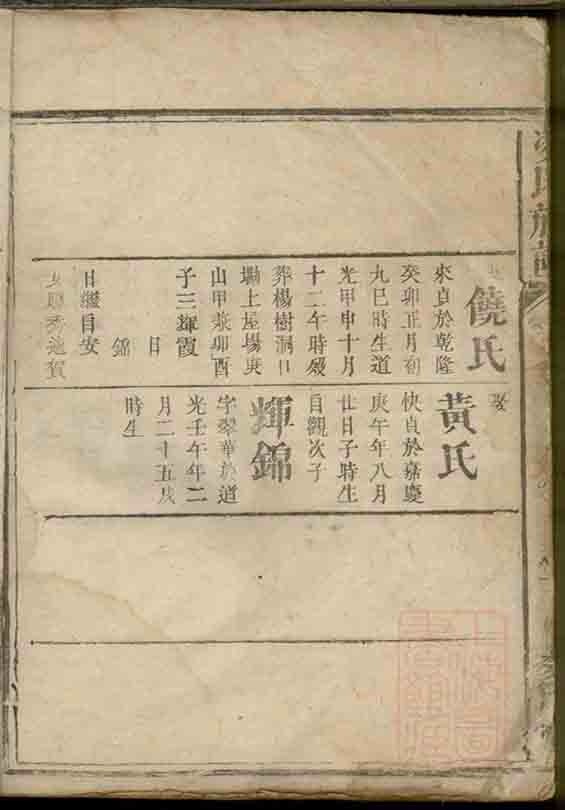 饒氏
來貞於乾隆
癸卯正月初
九巳時生道
光甲申十月
十二午時歿
葬楊樹洞口
塝上屋場庚
山甲兼卯酉
子三輝霞
日
錦
日繼自安
配
黃氏
快貞於嘉慶
庚午年八月
廿日子時生
自觀次子
輝錦
字翠華於道
光壬午年二
月二十五戌
時生